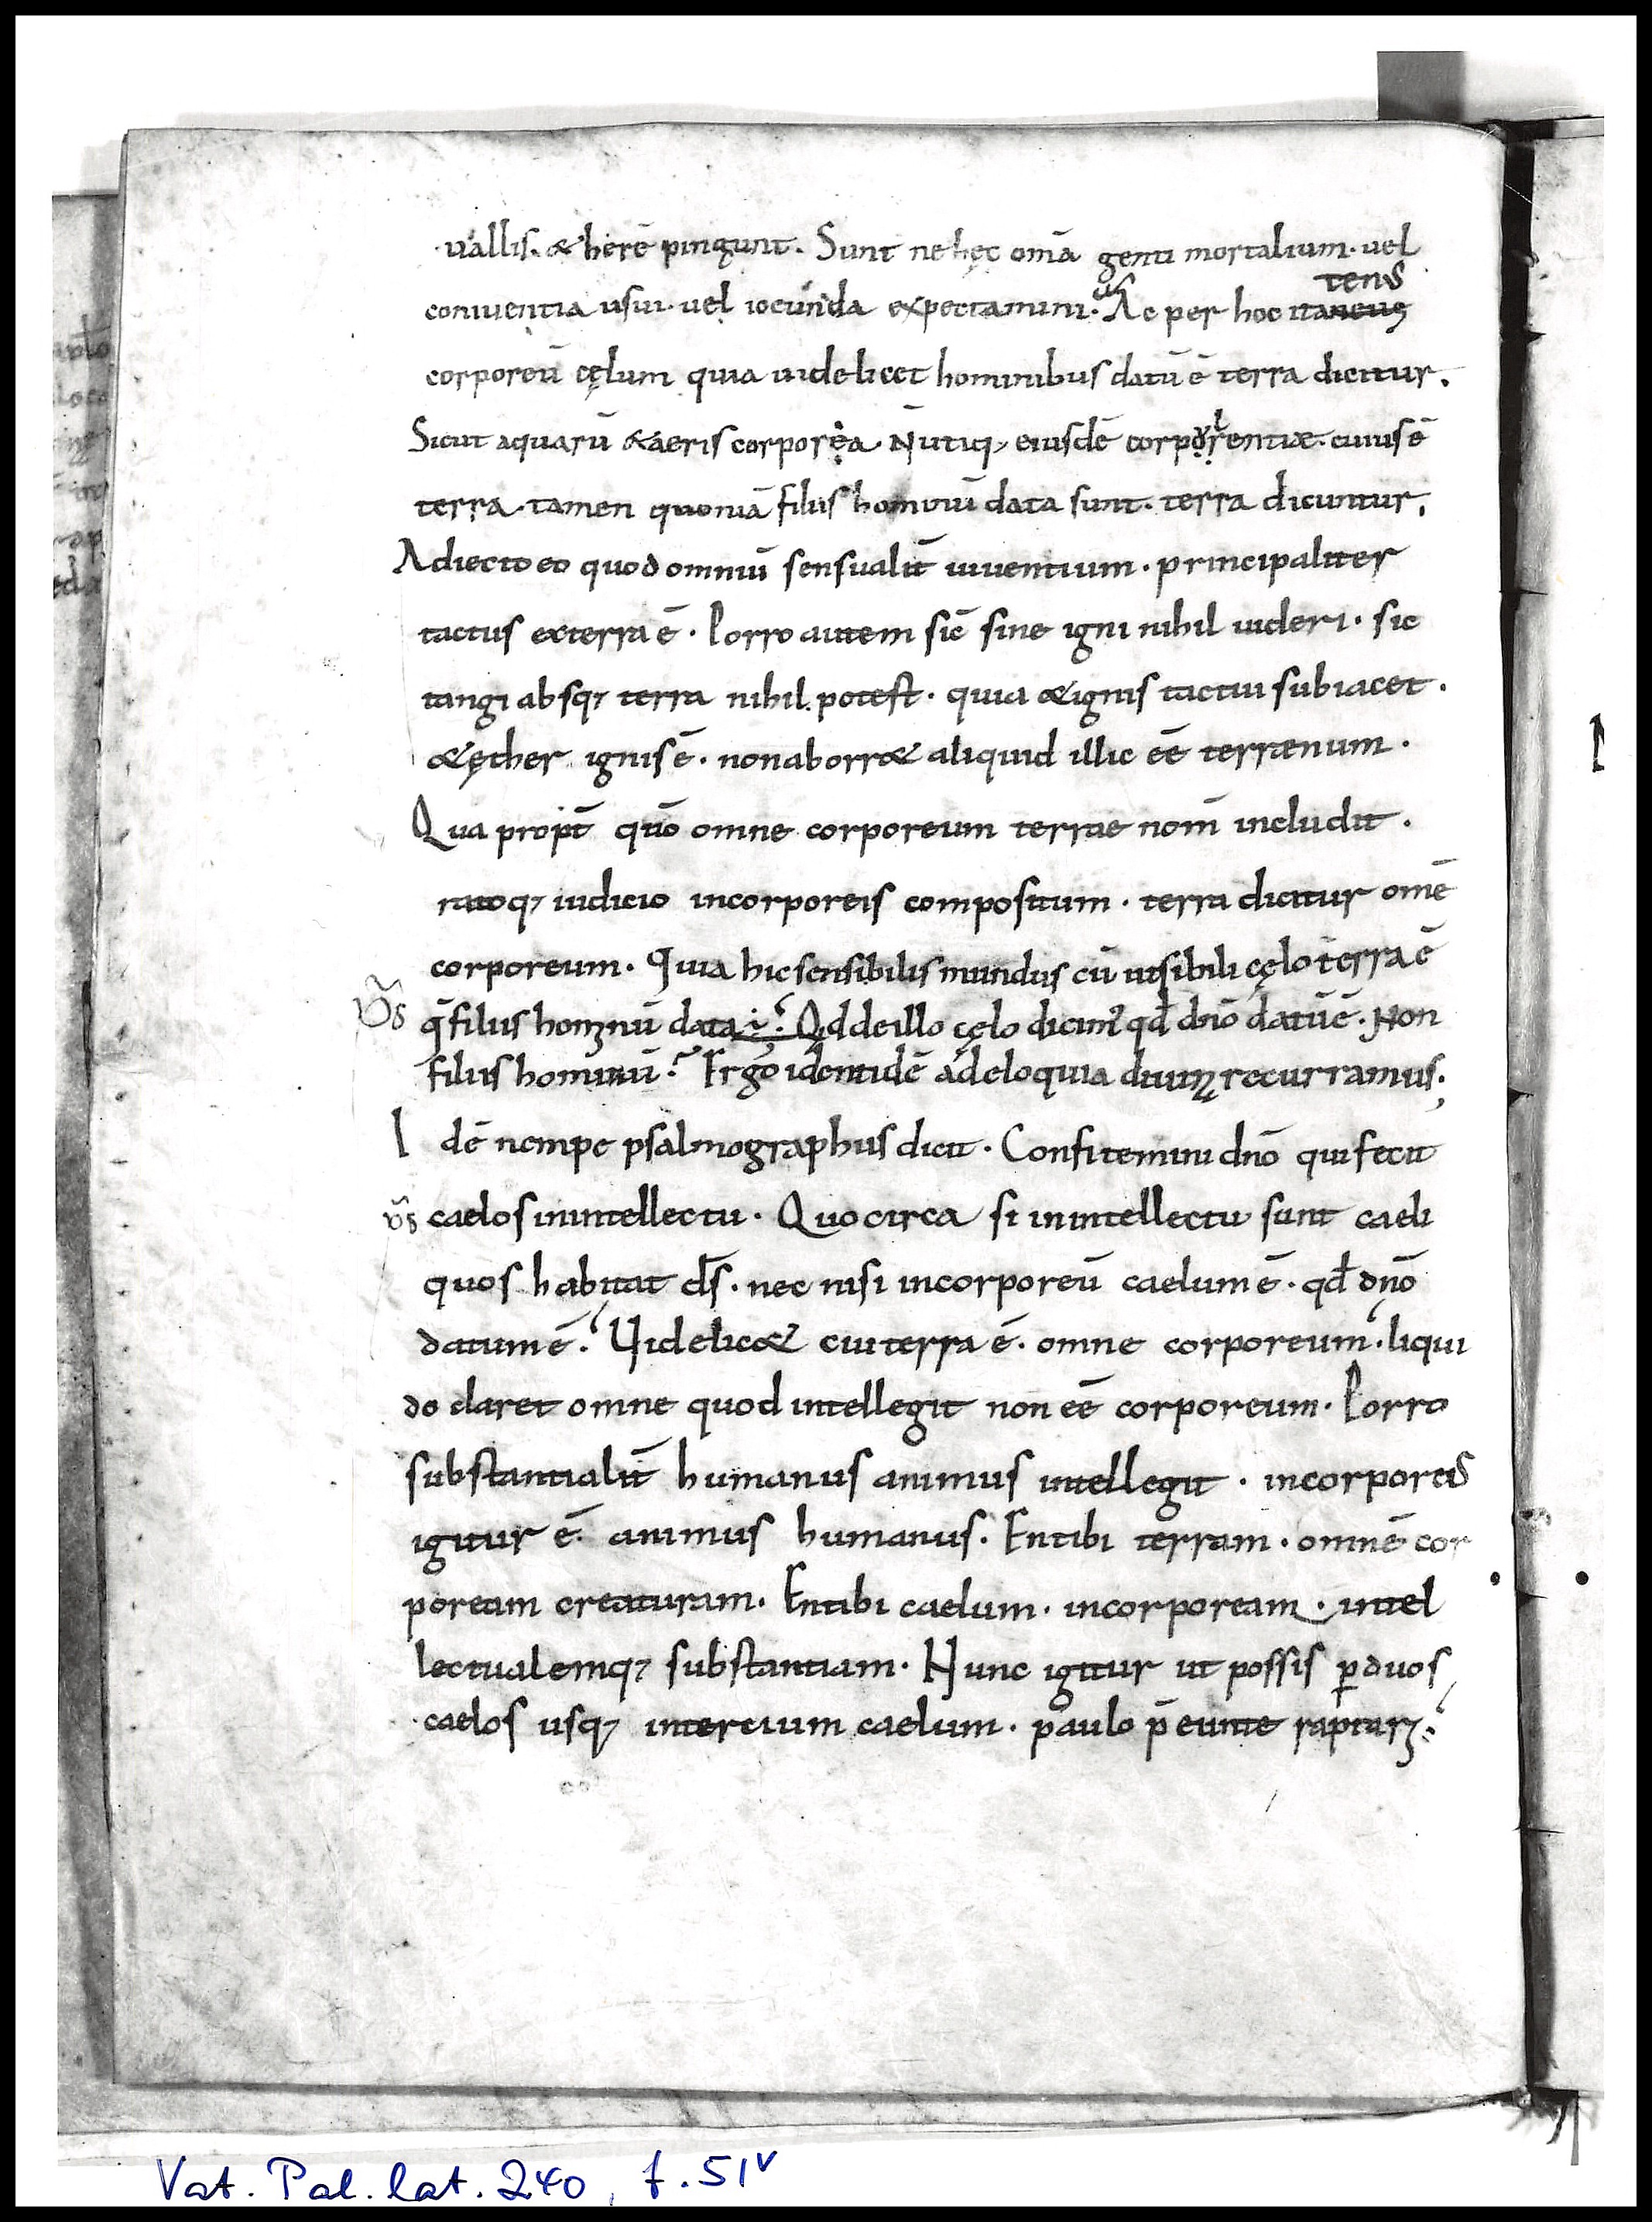 uallis. & herē pingunt. Sunt ne hęc omā genti mortalium. uel
tens
conuentia usui. uel iocunda expectamini. Ac per hoc itaneus
corporeū cęlum quia uidelicet hominibus datū ē terra dicitur.
Sicut aquarū & aeris corporea N̄ utiq; eiusdē corporentiæ. cuius ē
terra. tamen quoniā filiis hominū data sunt. terra dicuntur.
Adiecto eo quod omniū sensualit̄ uiuentium. principaliter
tactus ex terra ē. Porro autem sic̄ sine igni nihil uideri. sic
tangi absq; terra nihil potest. quia & ignis tactui subiacet.
& ęther ignis ē. non aborr& aliquid illic eē terrænum.
Qua propt̄ quō omne corporeum terrae nom̄ includit.
ratoq; iudicio incorporeis compositum. terra dicitur omē
corporeum. Quia hic sensibilis mundus cū uisibili cęlo terra ē
v̄s q̄ filiis hominū data ē? Qd de illo cęlo dicim᷒ qd̄ dn̄o datū ē. Non
filiis hominū? Ergo identidē ad eloquia diuinę recurramus.
I dē nempe psalmographus dicit. Confitemini dn̄o qui fecit
v̄s caelos in intellectu. Quo circa si in intellectu sunt caeli
quos habitat d̄s. nec nisi incorporeū caelum ē. qd̄ dn̄o
datum ē. Uidelic& cui terra ē. omne corporeum. liqui
do claret omne quod intellegit non eē corporeum. Porro
substantialit̄ humanus animus intellegit. incorporeus
igitur ē. animus humanus. En tibi terram. omnē cor
poream creaturam. En tibi caelum. incorpoream. intel
lectualemq; substantiam. Hunc igitur ut possis ꝑ duos
caelos usq; in tercium caelum. paulo p̄eunte raptarʒ.
Vat. Pal. lat. 240, f. 51v